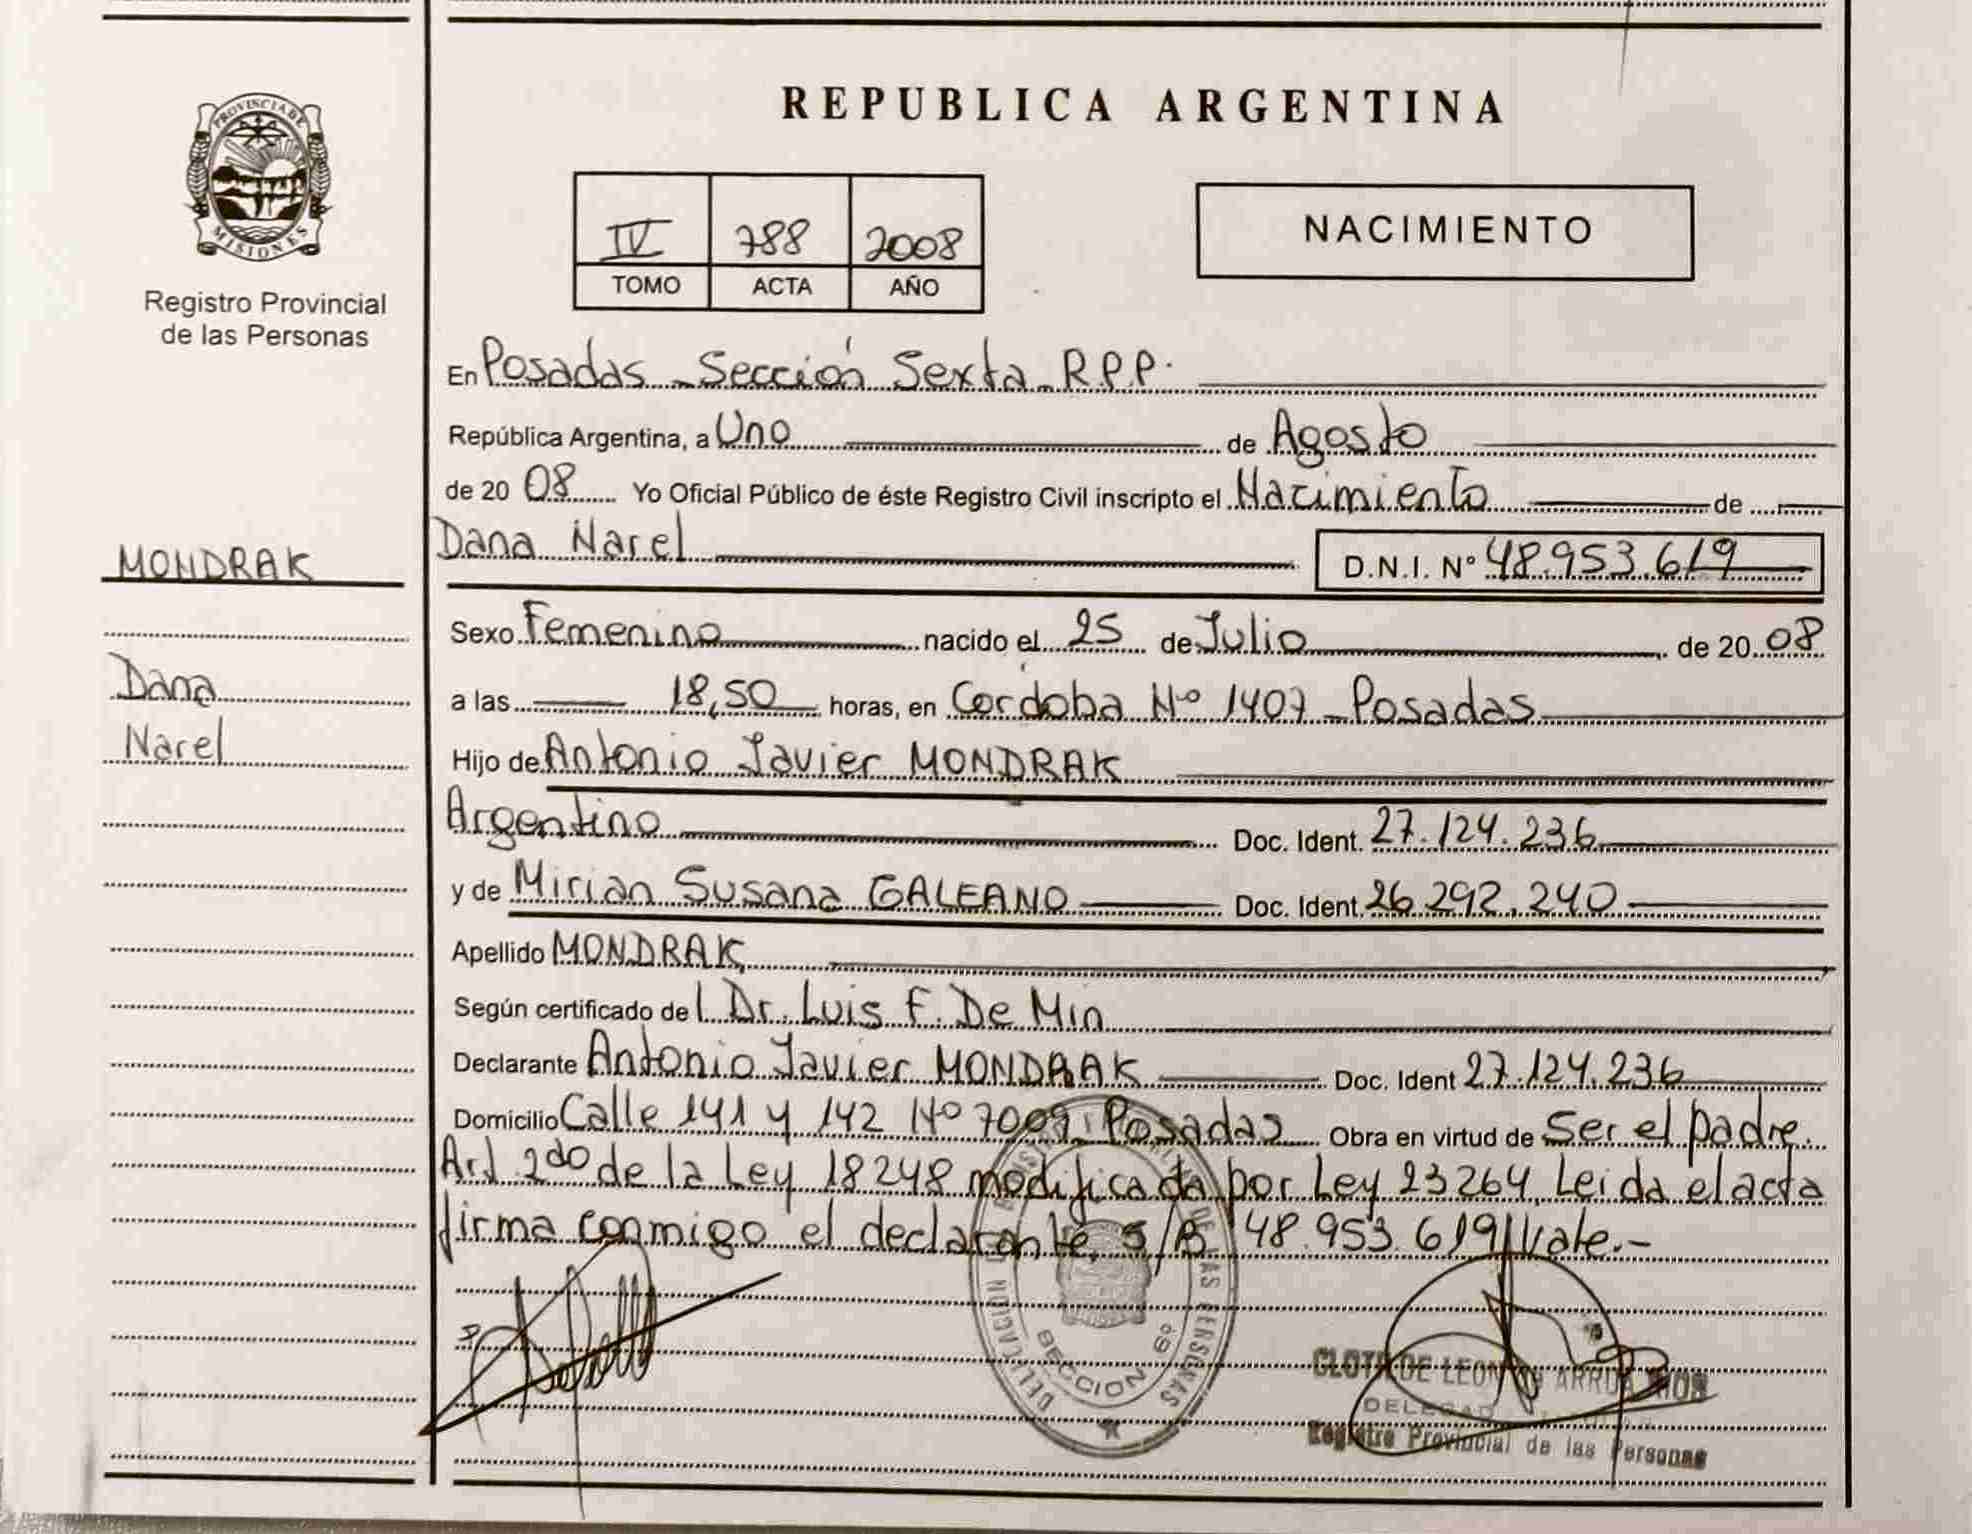 REPUBLICA ARGENTINA
PROVINCIA DE
MISIONES
Registro Provincial
de las Personas
IV 788 2008
TOMO ACTA AÑO
NACIMIENTO
En Posadas - Sección Sexta - R.P.P.
República Argentina, a Uno de Agosto
de 20 08 Yo Oficial Público de éste Registro Civil inscripto el Nacimiento de
MONDRAK
Dana Narel D.N.I. Nº 48.953.619
Sexo Femenino nacido el 25 de Julio de 20 08
Dana
Narel
a las 18,50 horas, en Córdoba Nº 1407 - Posadas
Hijo de Antonio Javier MONDRAK
Argentino Doc. Ident. 27.124.236
y de Mirian Susana GALEANO Doc. Ident. 26.292.240
Apellido MONDRAK
Según certificado del Dr. Luis F. De Min
Declarante Antonio Javier MONDRAK Doc. Ident 27.124.236
Domicilio Calle 141 y 142 Nº 7009, Posadas Obra en virtud de Ser el padre.
Art. 2do de la Ley 18248 modificada por Ley 23264, Leida el acta
firma conmigo el declarante, S/B 48.953.619 Vale.-
DELEGACION DE LAS PERSONAS
SECCION 6º
Registro Provincial de las Personas